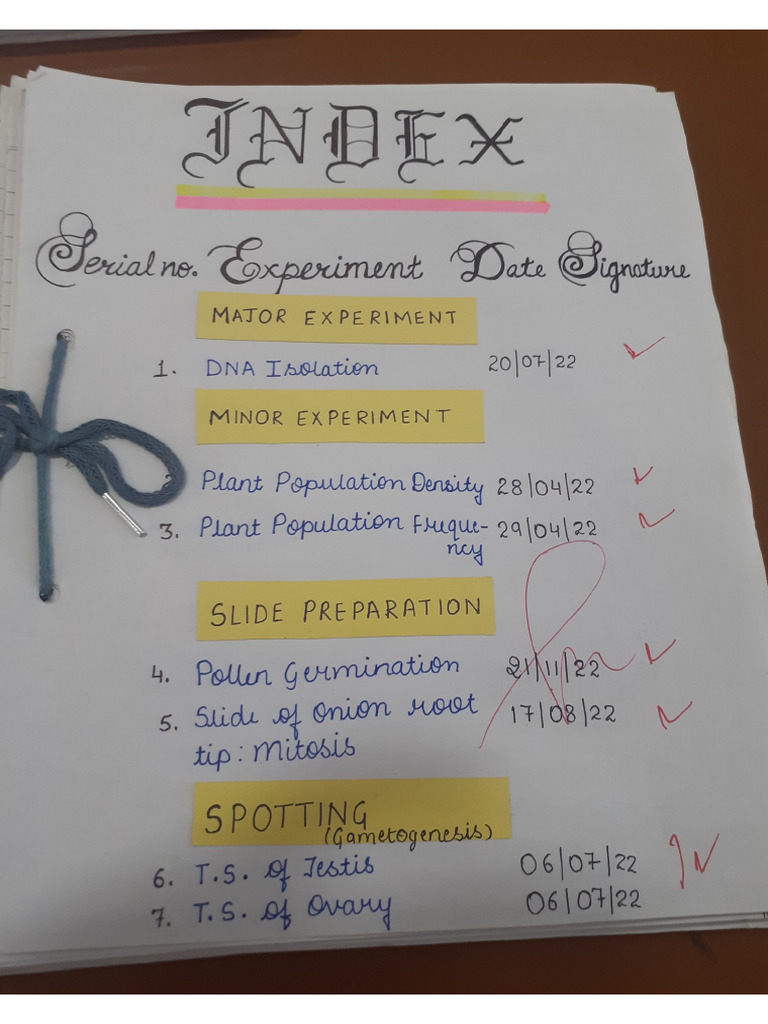 INDEX
Serial no. Experiment Date Signature
MAJOR EXPERIMENT
1. DNA Isolation 20/07/22
MINOR EXPERIMENT
Plant Population Density 28/04/22
3. Plant Population Freque- 29/04/22
ncy
SLIDE PREPARATION
4. Pollen Germination 21/11/22
5. Slide of onion root 17/08/22
tip: Mitosis
SPOTTING
(Gametogenesis)
6. T.S. of Testis 06/07/22
7. T.S. of Ovary 06/07/22